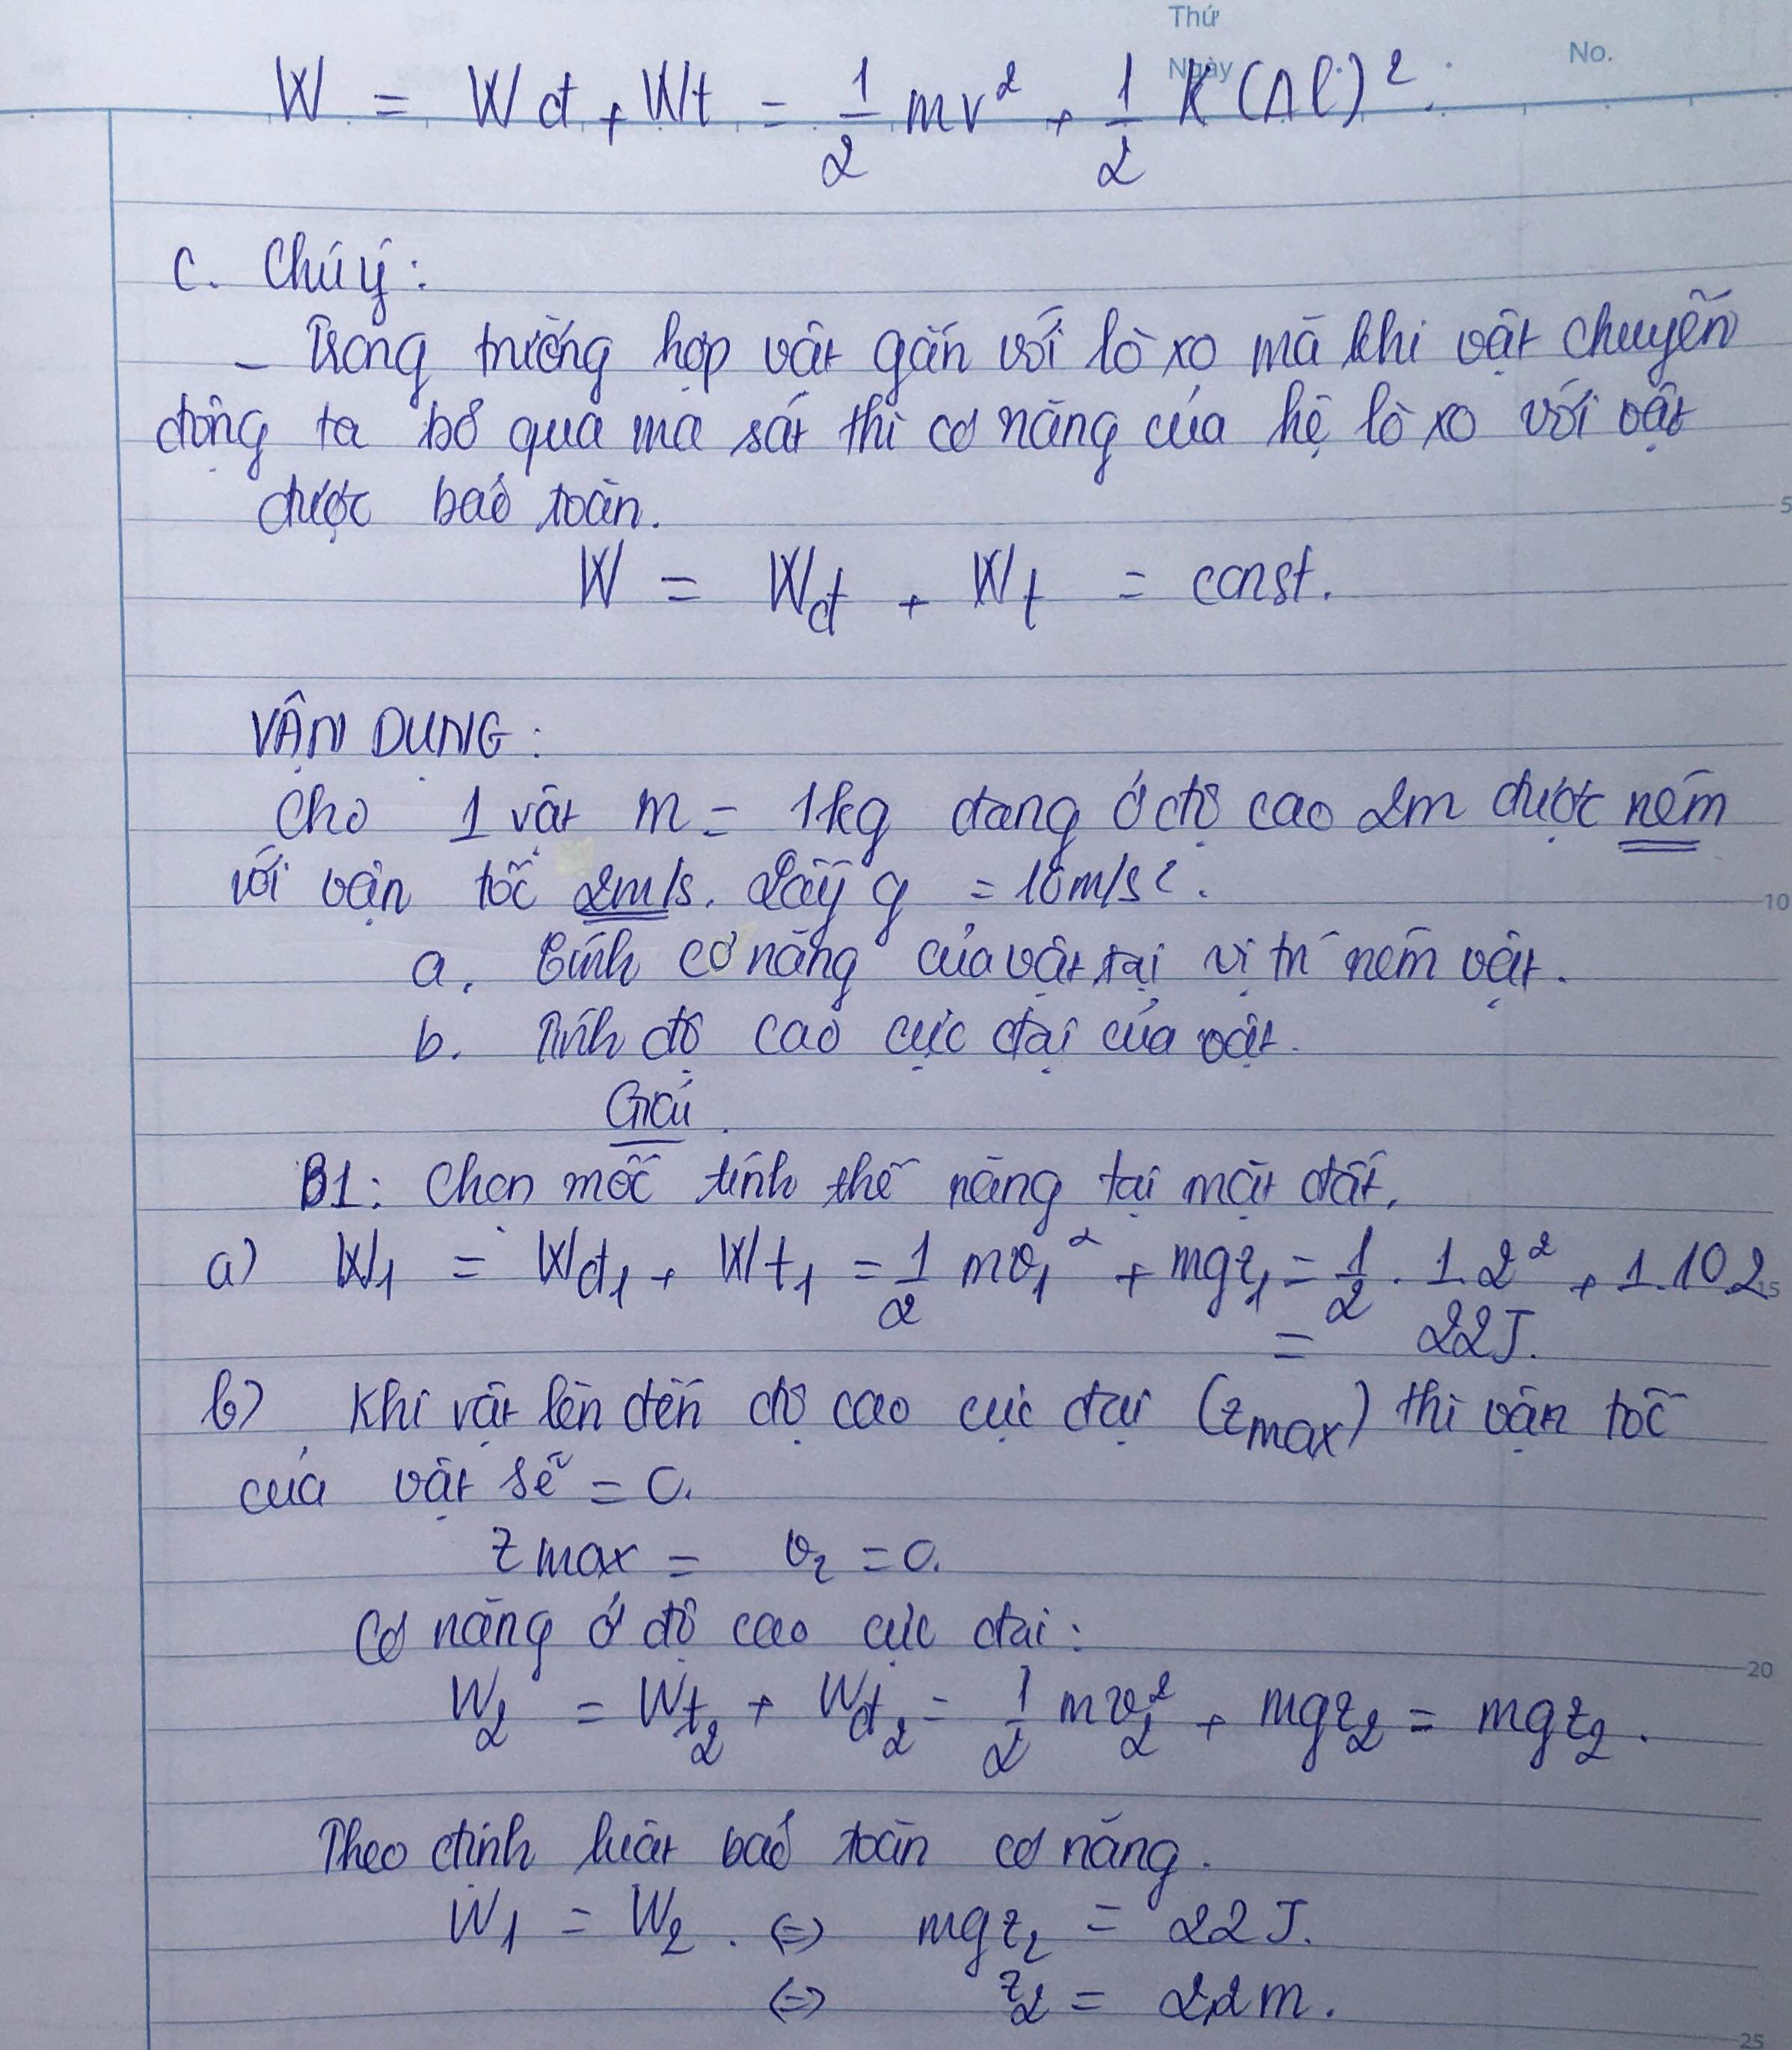 Thứ
Ngày
No.
W = Wđ + Wt = 1/2 mv² + 1/2 K(Δl)².
C. Chú ý:
- Trong trường hợp vật gắn với lò xo mà khi vật chuyển
động ta bỏ qua ma sát thì cơ năng của hệ lò xo với vật
được bảo toàn.
5
W = Wđ + Wt = const.
VẬN DỤNG:
Cho 1 vật m = 1kg đang ở độ cao 2m được ném
với vận tốc 2m/s. Lấy g = 10m/s².
10
a. Tính cơ năng của vật tại vị trí ném vật.
b. Tính độ cao cực đại của vật.
Giải
B1: Chọn mốc tính thế năng tại mặt đất.
a) W1 = Wđ1 + Wt1 = 1/2 mv1² + mgz1 = 1/2 . 1.2² + 1.10.2
15
= 22J.
b) Khi vật lên đến độ cao cực đại (zmax) thì vận tốc
của vật sẽ = 0.
zmax = v2 = 0.
Cơ năng ở độ cao cực đại:
20
W2 = Wt2 + Wđ2 = 1/2 mv2² + mgz2 = mgz2.
Theo định luật bảo toàn cơ năng.
W1 = W2. <=> mgz2 = 22J.
<=> z2 = 2,2m.
25